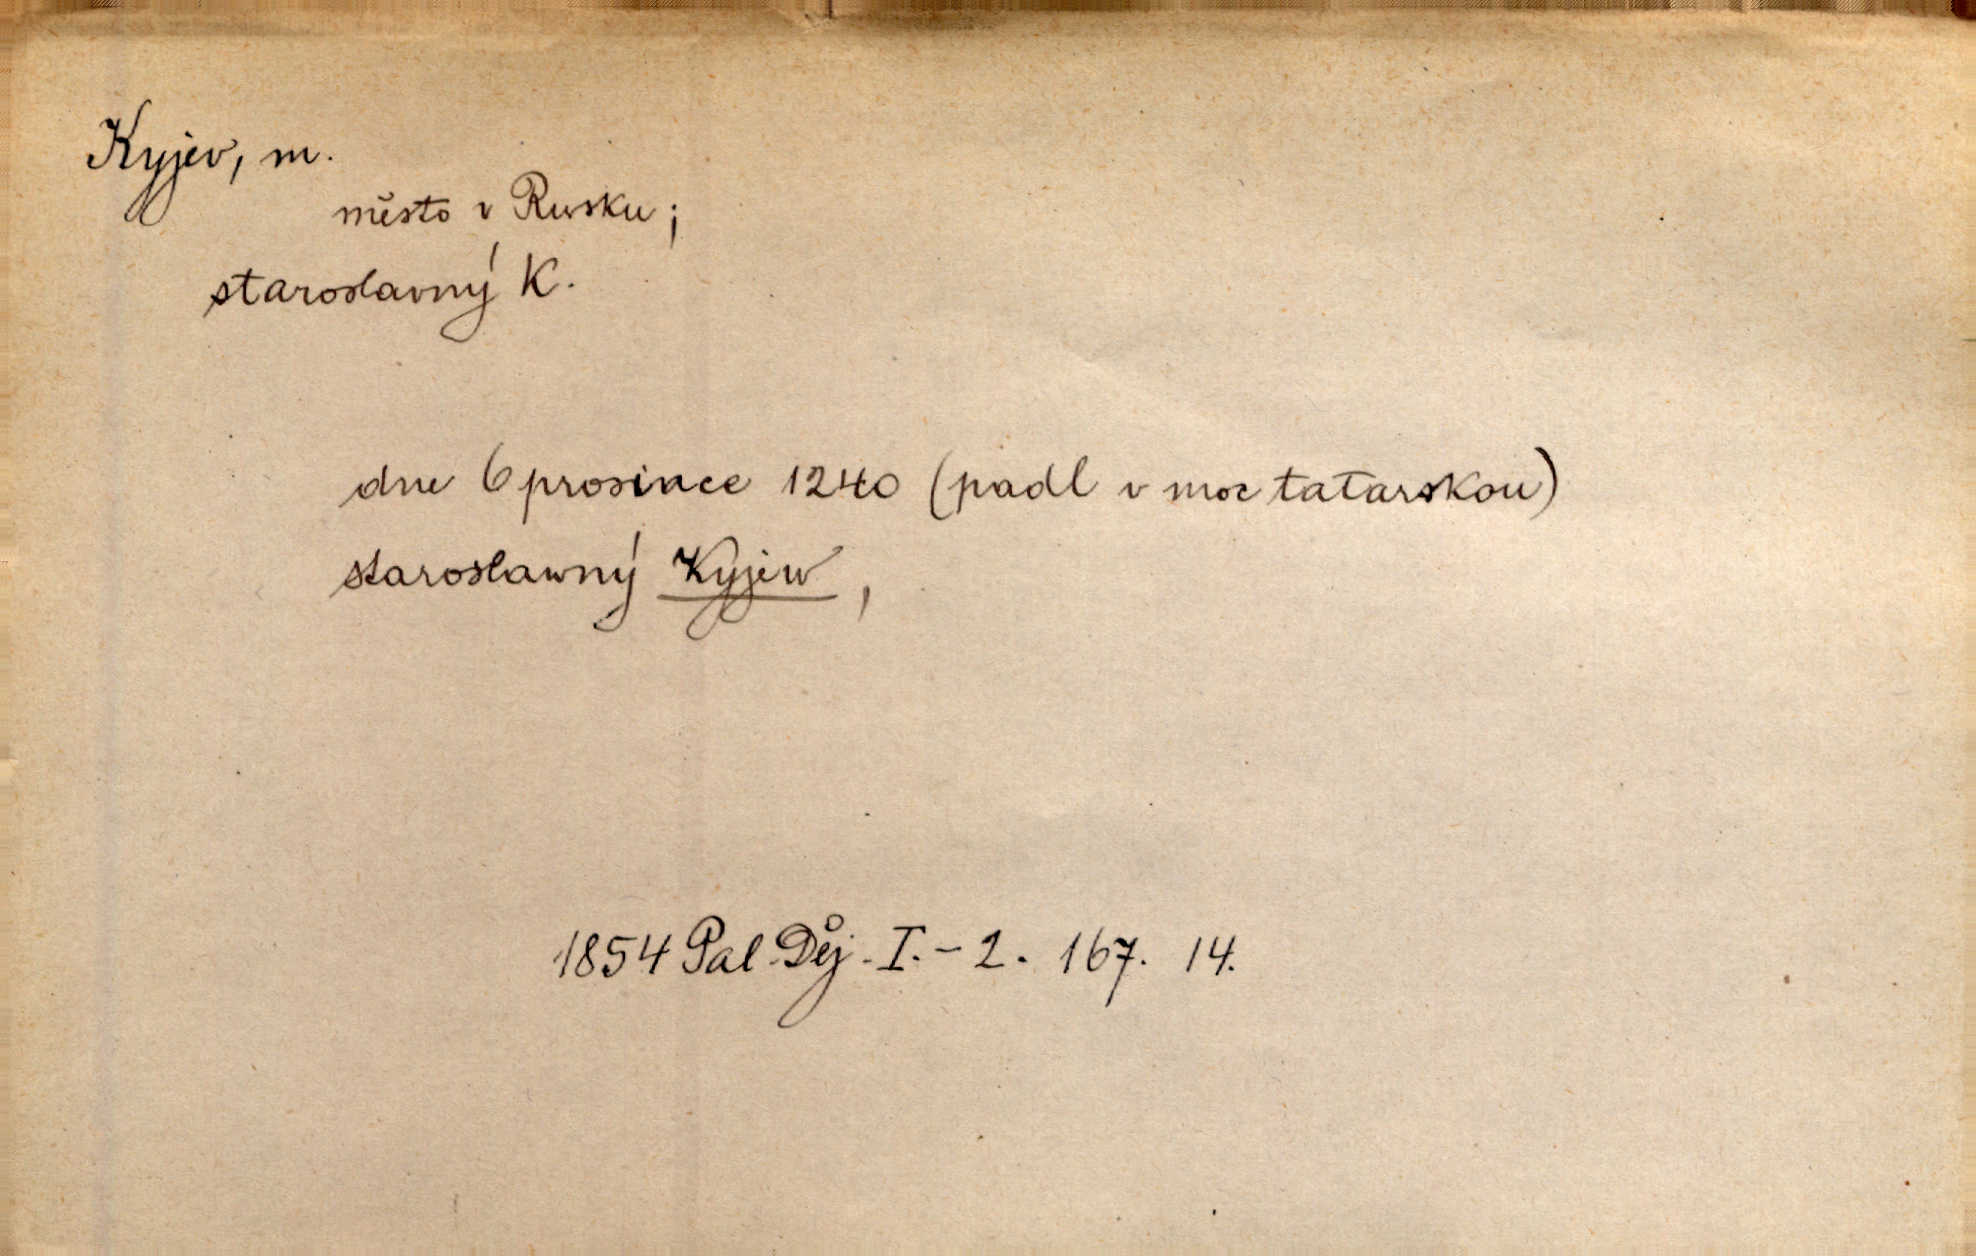 Kyjev, m.
město v Rusku;
staroslavný K.
dne 6 prosince 1240 (padl v moc tatarskou)
staroslawný Kyjew,
1854 Pal. Děj. I. - 2. 167. 14.